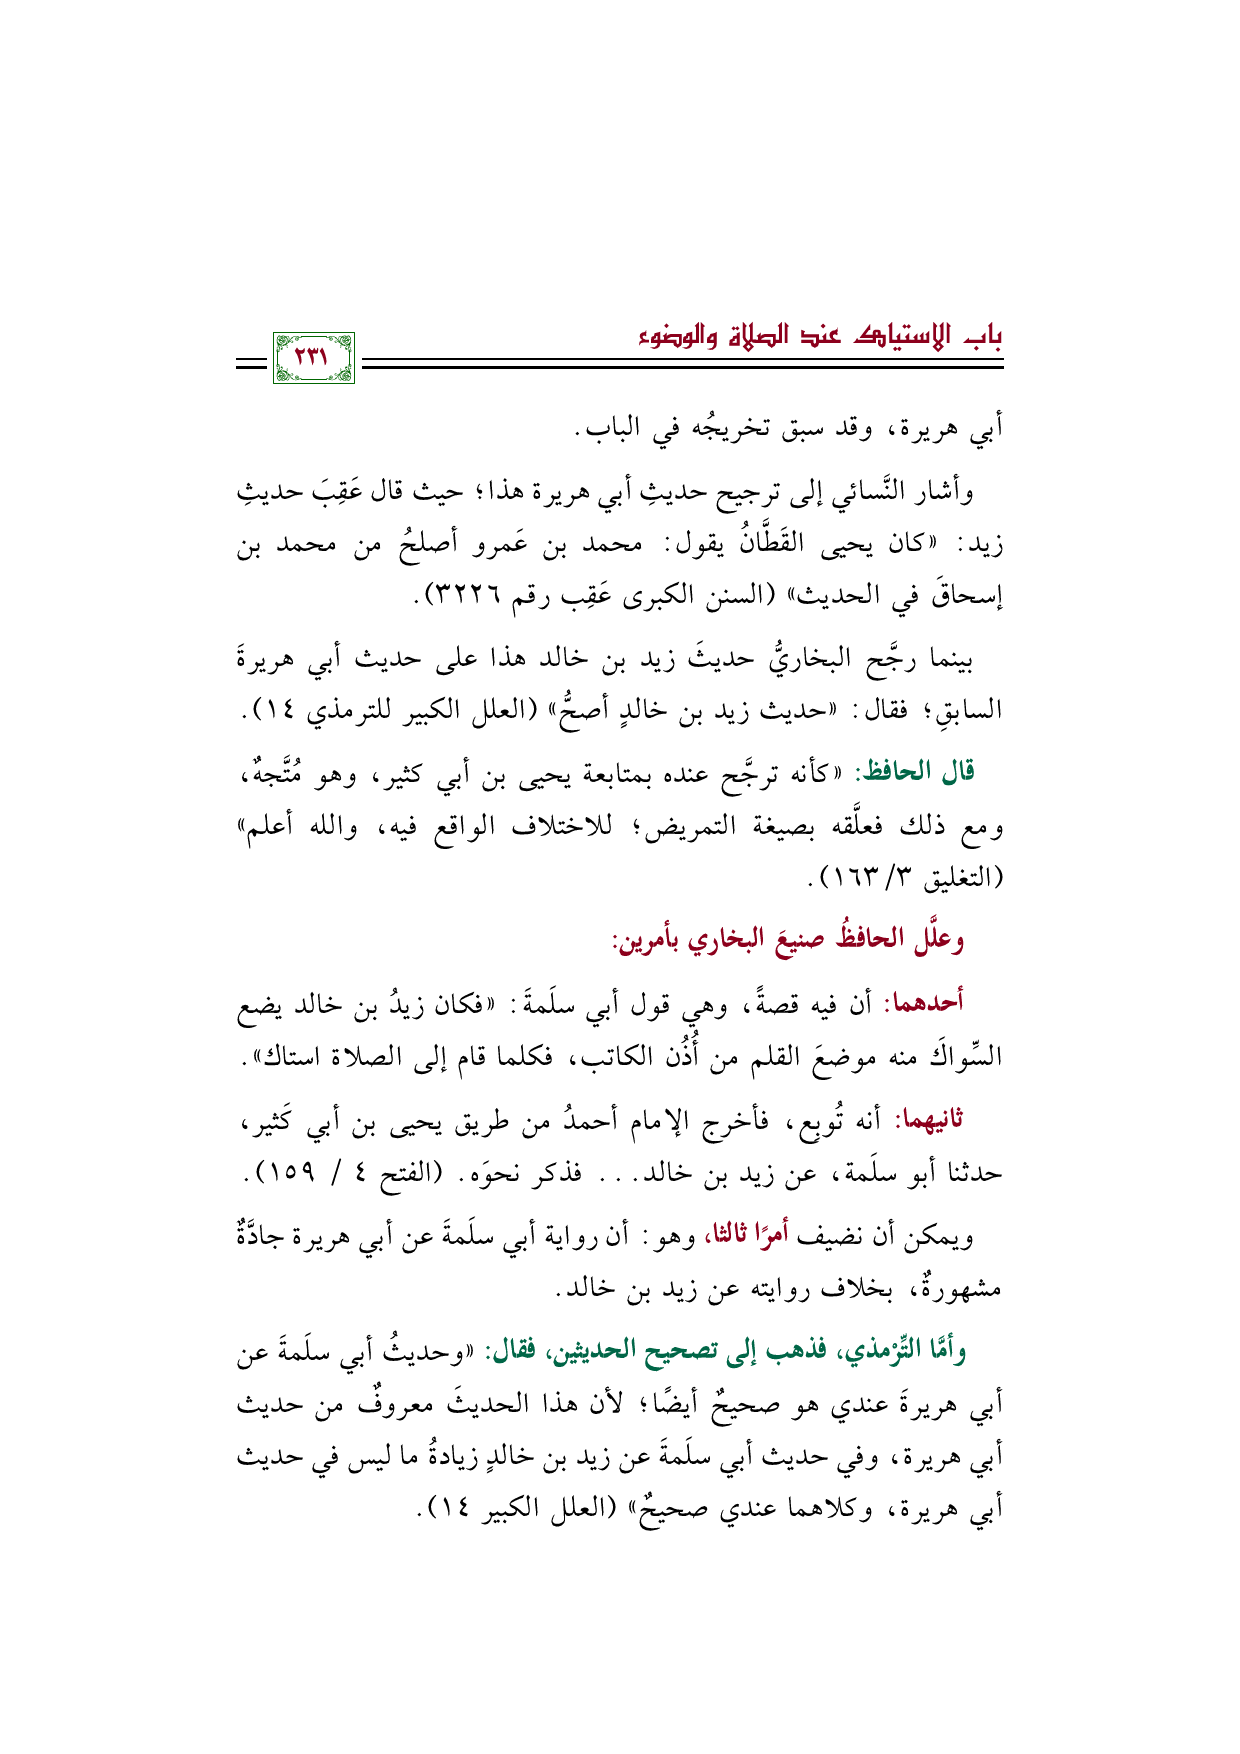 باب الاستياك عند الصلاة والوضوء
٢٣١
أبي هريرة، وقد سبق تخريجُه في الباب.
وأشار النَّسائي إلى ترجيح حديثِ أبي هريرة هذا؛ حيث قال عَقِبَ حديثِ
زيد: «كان يحيى القَطَّانُ يقول: محمد بن عَمرو أصلحُ من محمد بن
إسحاقَ في الحديث» (السنن الكبرى عَقِب رقم ٣٢٢٦).
بينما رجَّح البخاريُّ حديثَ زيد بن خالد هذا على حديث أبي هريرةَ
السابقِ؛ فقال: «حديث زيد بن خالدٍ أصحُّ» (العلل الكبير للترمذي ١٤).
قال الحافظ: «كأنه ترجَّح عنده بمتابعة يحيى بن أبي كثير، وهو مُتَّجهٌ،
ومع ذلك فعلَّقه بصيغة التمريض؛ للاختلاف الواقع فيه، والله أعلم»
(التغليق ٣/ ١٦٣).
وعلَّل الحافظُ صنيعَ البخاري بأمرين:
أحدهما: أن فيه قصةً، وهي قول أبي سلَمةَ: «فكان زيدُ بن خالد يضع
السِّواكَ منه موضعَ القلم من أُذُن الكاتب، فكلما قام إلى الصلاة استاك».
ثانيهما: أنه تُوبِع، فأخرج الإمام أحمدُ من طريق يحيى بن أبي كَثير،
حدثنا أبو سلَمة، عن زيد بن خالد... فذكر نحوَه. (الفتح ٤ / ١٥٩).
ويمكن أن نضيف أمرًا ثالثا، وهو: أن رواية أبي سلَمةَ عن أبي هريرة جادَّةٌ
مشهورةٌ، بخلاف روايته عن زيد بن خالد.
وأمَّا التِّرْمذي، فذهب إلى تصحيح الحديثين، فقال: «وحديثُ أبي سلَمةَ عن
أبي هريرةَ عندي هو صحيحٌ أيضًا؛ لأن هذا الحديثَ معروفٌ من حديث
أبي هريرة، وفي حديث أبي سلَمةَ عن زيد بن خالدٍ زيادةُ ما ليس في حديث
أبي هريرة، وكلاهما عندي صحيحٌ» (العلل الكبير ١٤).